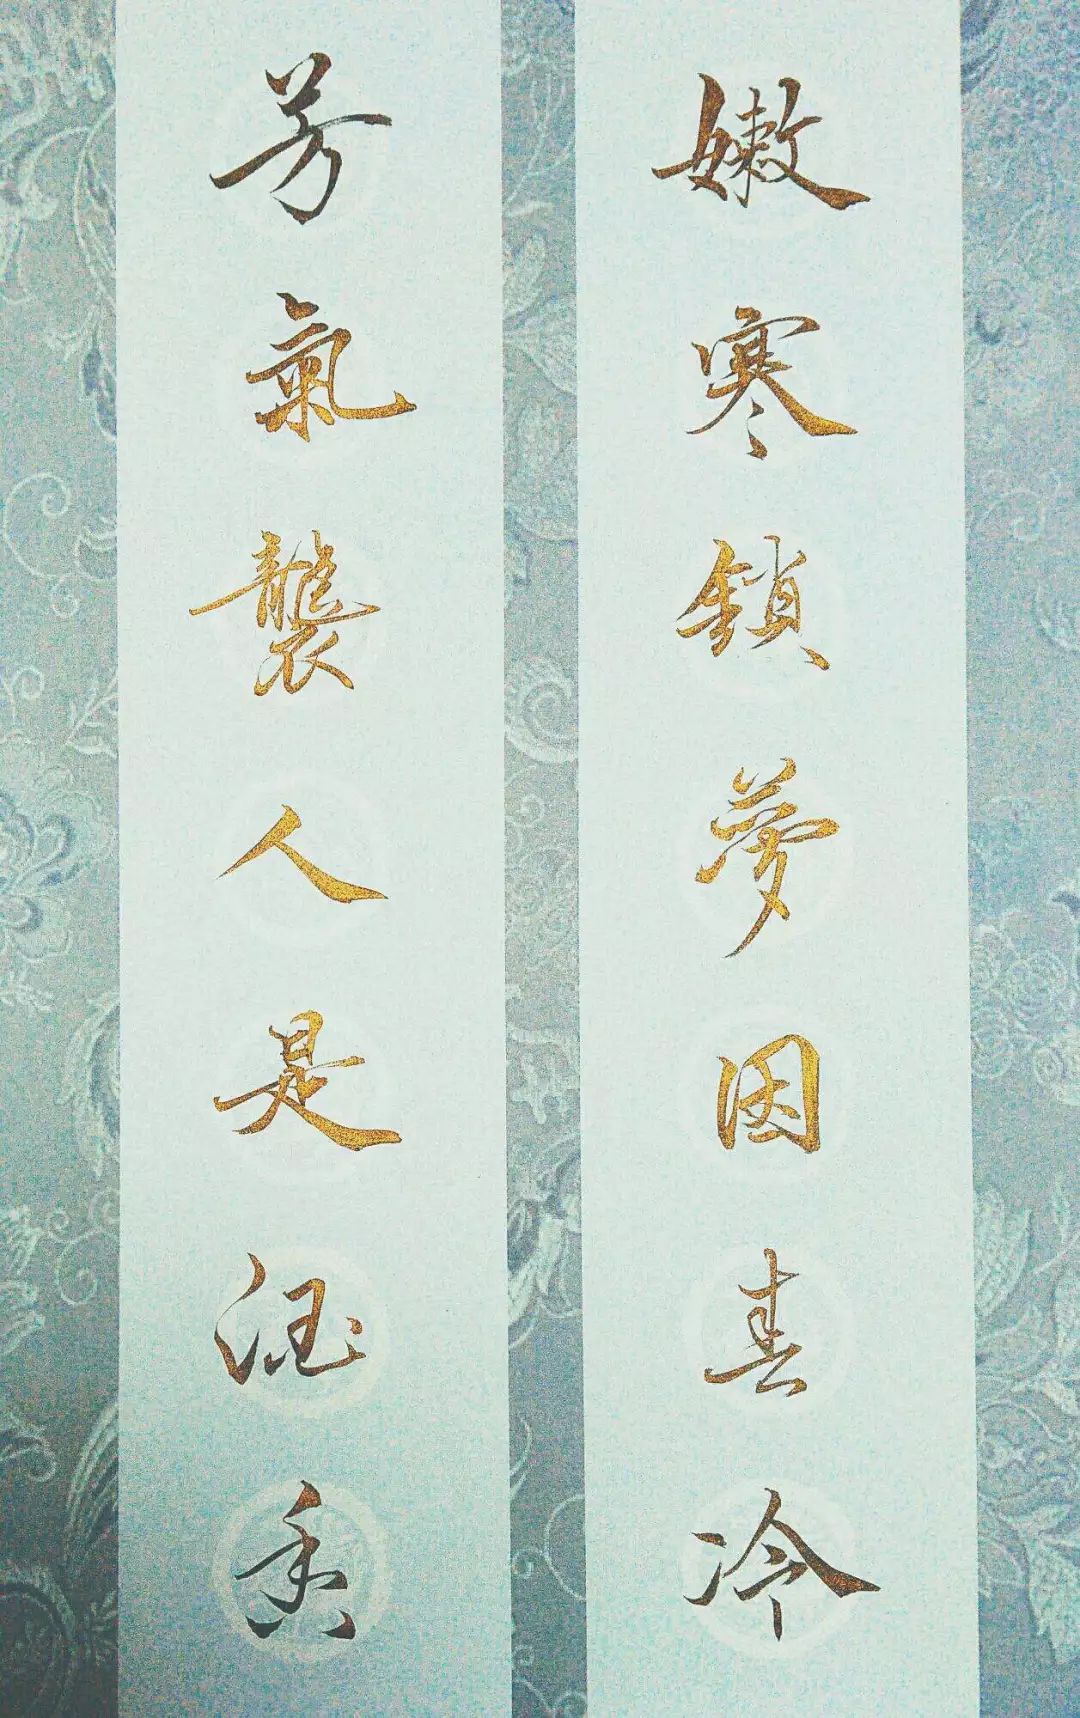 嫩寒鎖夢因春冷
芳氣襲人是酒香